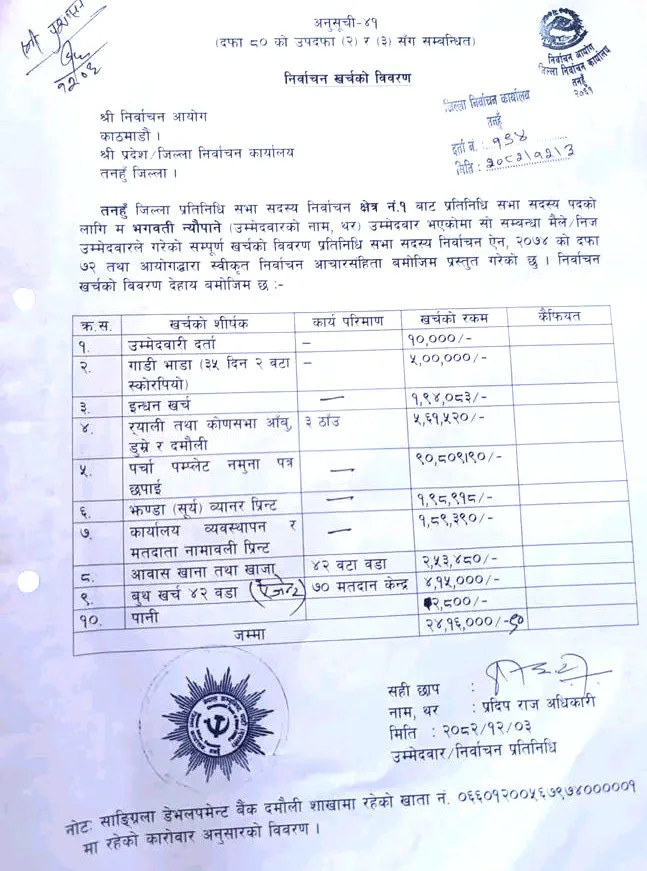 अनुसूची-४१
(दफा ८० को उपदफा (२) र (३) संग सम्बन्धित)
निर्वाचन खर्चको विवरण
निर्वाचन आयोग
जिल्ला निर्वाचन कार्यालय
तनहुँ
जिल्ला निर्वाचन कार्यालय
तनहुँ
दर्ता नं.: १९४
मिति : २०८२।१२।३
श्री निर्वाचन आयोग
काठमाडौं ।
श्री प्रदेश/जिल्ला निर्वाचन कार्यालय
तनहुँ जिल्ला ।
तनहुँ जिल्ला प्रतिनिधि सभा सदस्य निर्वाचन क्षेत्र नं.१ बाट प्रतिनिधि सभा सदस्य पदको
लागि म भगवती न्यौपाने (उम्मेदवारको नाम, थर) उम्मेदवार भएकोमा सो सम्बन्धा मैले/निज
उम्मेदवारले गरेको सम्पूर्ण खर्चको विवरण प्रतिनिधि सभा सदस्य निर्वाचन ऐन, २०७४ को दफा
७२ तथा आयोगद्वारा स्वीकृत निर्वाचन आचारसहिता बमोजिम प्रस्तुत गरेको छु । निर्वाचन
खर्चको विवरण देहाय बमोजिम छ :-
क्र.स. खर्चको शीर्षक कार्य परिमाण खर्चको रकम कैफियत
१. उम्मेदवारी दर्ता – १०,०००/-
२. गाडी भाडा (३५ दिन २ वटा – ५,००,०००/-
स्कोरपियो)
३. इन्धन खर्च — १,९४,०८३/-
४. र्‍याली तथा कोणसभा आँबु, ३ ठाँउ ५,६१,५२०/-
डुम्रे र दमौली
५. पर्चा पम्प्लेट नमुना पत्र —
छपाई
६. झण्डा (सूर्य) व्यानर प्रिन्ट — १,९८,९१८/-
७. कार्यालय व्यवस्थापन र — १,८९,३९०/-
मतदाता नामावली प्रिन्ट
८. आवास खाना तथा खाजा ४२ वटा वडा २,५३,४८०/-
९. बुथ खर्च ४२ वडा ७० मतदान केन्द्र ४,१५,०००/-
१०. पानी १२,८००/-
जम्मा २४,१६,०००/-९०
सही छाप :
नाम, थर : प्रदिप राज अधिकारी
मिति : २०८२/१२/०३
उम्मेदवार/निर्वाचन प्रतिनिधि
नोट: साङ्ग्रिला डेभलपमेन्ट बैंक दमौली शाखामा रहेको खाता नं. ०६६०१२००५६७९७४००००००१
मा रहेको कारोवार अनुसारको विवरण ।